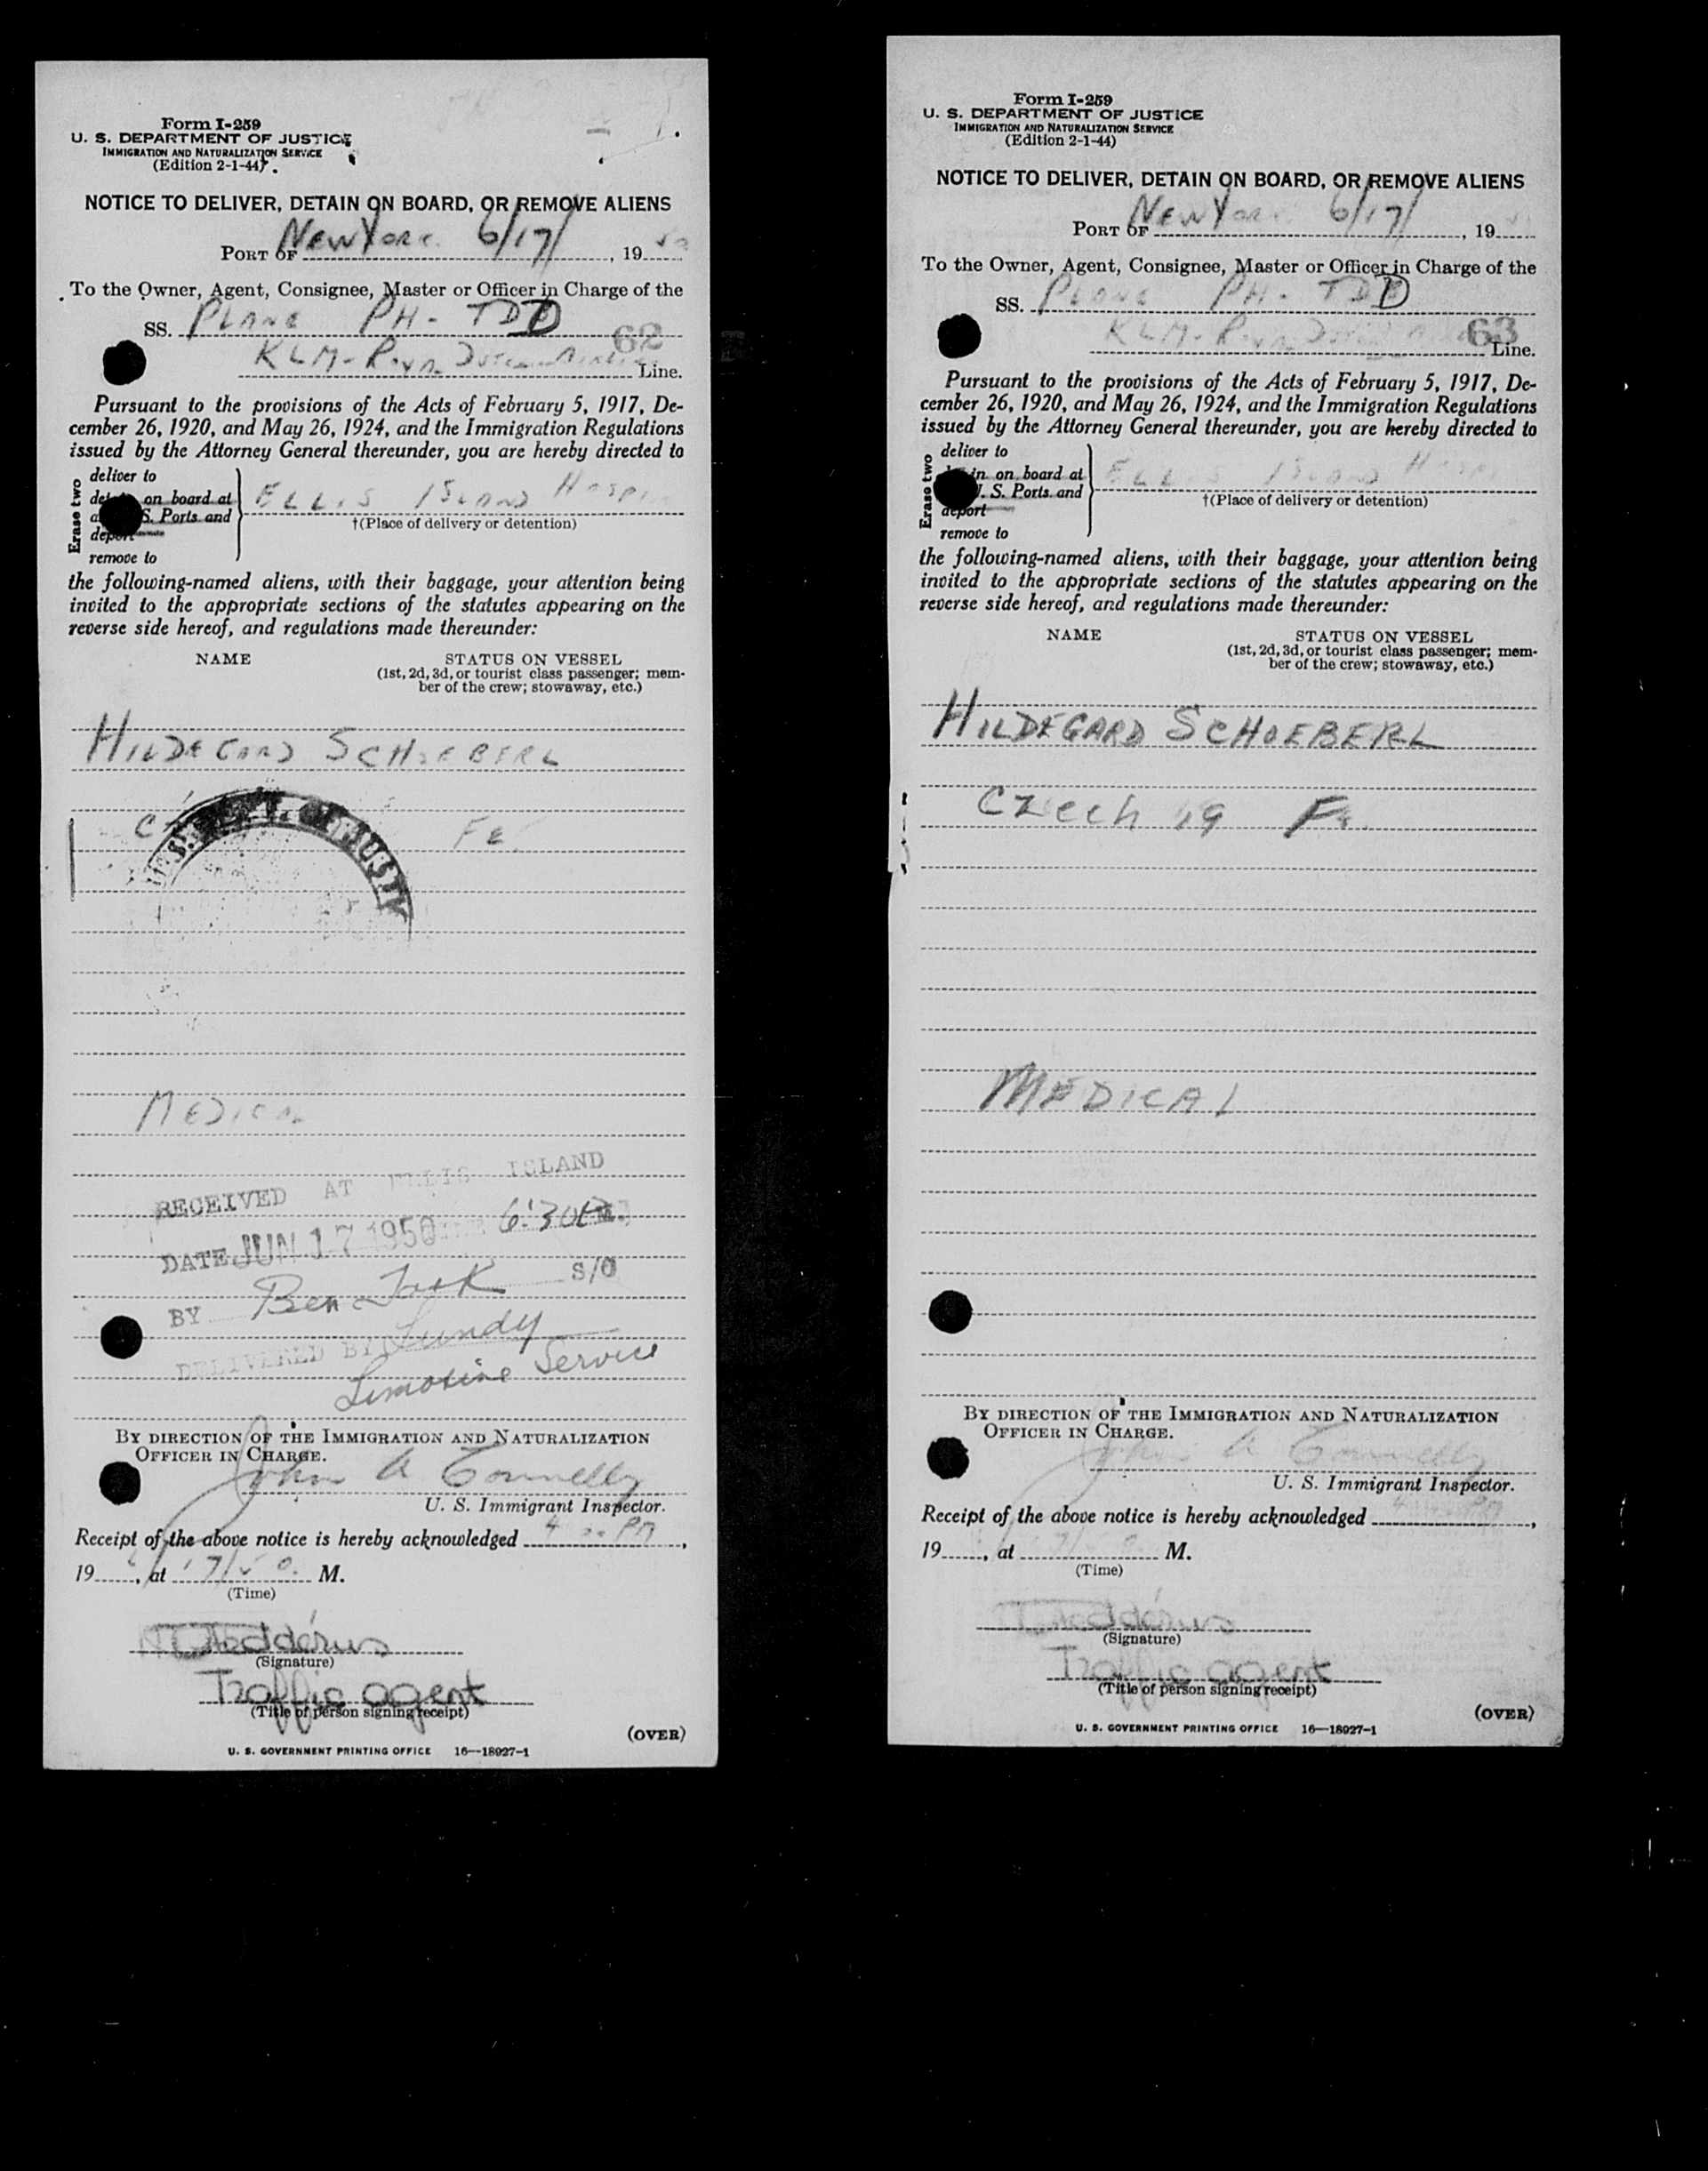 Form I-259
U. S. DEPARTMENT OF JUSTICE
IMMIGRATION AND NATURALIZATION SERVICE
(Edition 2-1-44)
NOTICE TO DELIVER, DETAIN ON BOARD, OR REMOVE ALIENS
PORT OF New York 6/17/, 19 50
To the Owner, Agent, Consignee, Master or Officer in Charge of the
SS. PLANE PH- TDD
62
KLM- Line.
Pursuant to the provisions of the Acts of February 5, 1917, De-
cember 26, 1920, and May 26, 1924, and the Immigration Regulations
issued by the Attorney General thereunder, you are hereby directed to
Erase two
deliver to
on board at
S. Ports and
deport
remove to
ELLIS ISLAND
†(Place of delivery or detention)
the following-named aliens, with their baggage, your attention being
invited to the appropriate sections of the statutes appearing on the
reverse side hereof, and regulations made thereunder:
NAME STATUS ON VESSEL
(1st, 2d, 3d, or tourist class passenger; mem-
ber of the crew; stowaway, etc.)
HILDEGARD SCHOEBERL
FE.
MEDICAL
RECEIVED AT ELLIS ISLAND
DATE JUN 17 1950 6:30
BY Ben S/O
DELIVERED BY Lundy
Limosine Service
BY DIRECTION OF THE IMMIGRATION AND NATURALIZATION
OFFICER IN CHARGE.
John A Connelly
U. S. Immigrant Inspector.
Receipt of the above notice is hereby acknowledged 4 PM,
19, at M.
(Time)
(Signature)
Traffic agent
(Title of person signing receipt)
(OVER)
U. S. GOVERNMENT PRINTING OFFICE 16—18027-1
Form I-259
U. S. DEPARTMENT OF JUSTICE
IMMIGRATION AND NATURALIZATION SERVICE
(Edition 2-1-44)
NOTICE TO DELIVER, DETAIN ON BOARD, OR REMOVE ALIENS
PORT OF New York 6/17/, 19
To the Owner, Agent, Consignee, Master or Officer in Charge of the
SS. PLANE PH- TDD
63
KLM- Line.
Pursuant to the provisions of the Acts of February 5, 1917, De-
cember 26, 1920, and May 26, 1924, and the Immigration Regulations
issued by the Attorney General thereunder, you are hereby directed to
Erase two
deliver to
on board at
S. Ports and
deport
remove to
ELLIS ISLAND
†(Place of delivery or detention)
the following-named aliens, with their baggage, your attention being
invited to the appropriate sections of the statutes appearing on the
reverse side hereof, and regulations made thereunder:
NAME STATUS ON VESSEL
(1st, 2d, 3d, or tourist class passenger; mem-
ber of the crew; stowaway, etc.)
HILDEGARD SCHOEBERL
Czech 19 Fe.
MEDICAL
BY DIRECTION OF THE IMMIGRATION AND NATURALIZATION
OFFICER IN CHARGE.
John A Connelly
U. S. Immigrant Inspector.
Receipt of the above notice is hereby acknowledged,
19, at M.
(Time)
(Signature)
Traffic agent
(Title of person signing receipt)
(OVER)
U. S. GOVERNMENT PRINTING OFFICE 16—18027-1